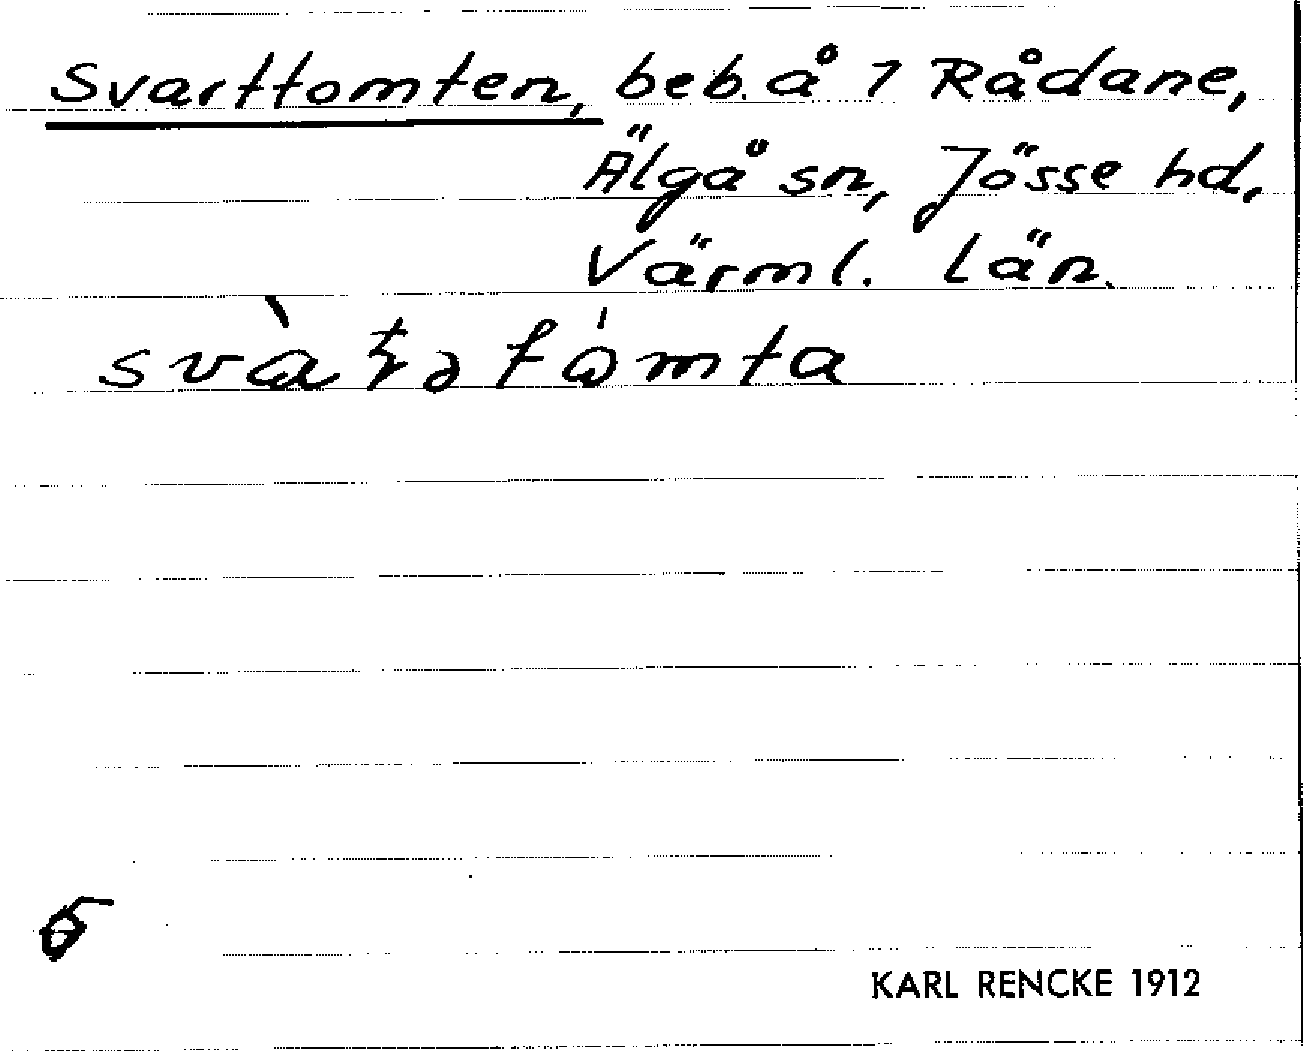 Svarttomten, beb. å 1 Rådane,
Älgå sn, Jösse hd,
Värml. län.
KARL RENCKE 1912